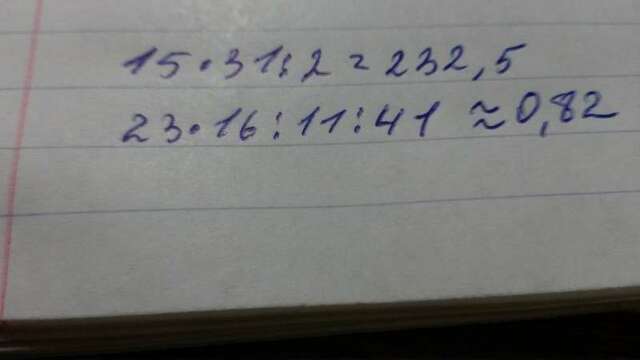 15·31:2=232,5
23·16:11:41≈0,82